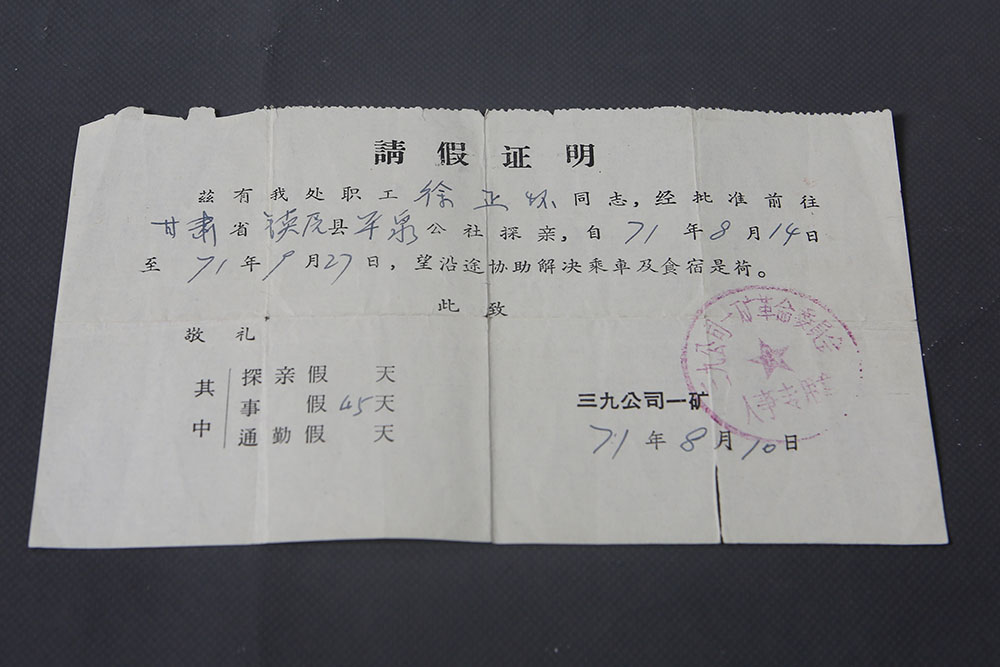 請假证明
兹有我处职工徐正怀同志，经批准前往
甘肃省镇原县平泉公社探亲，自71年8月14日
至71年9月27日，望沿途协助解决乘車及食宿是荷。
此致
敬礼
其中
探亲假 天
事 假45天
通勤假 天
三九公司一矿
71年8月10日
三九公司一矿革命委員会
人事专用章